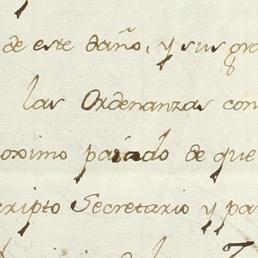 de este daño, y sus gra
las Ordenanzas con
oximo pasado de que
cripto Secretario y pa